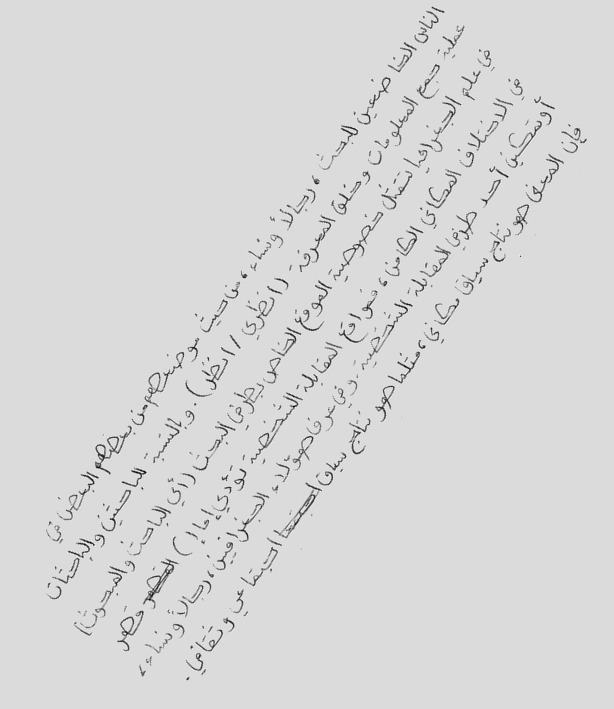 الناس الخاضعين للبحث، رجالاً ونساء، من حيث موضعهم من بعضهم البعض في
عملية جمع المعلومات وخلق المعرفة (انظري / انظر). وبالنسبة للباحثين والباحثات
في علم الجغرافيا تتمثل خصوصية الموقع الخاص بطرفي البحث (أي الباحث والمبحوث)
في الاختلاف المكاني الكامن، فمواقع المقابلة الشخصية تؤدي إما إلى قهر
أو تمكين أحد طرفي المقابلة الشخصية. وفي عرف هؤلاء الجغرافيين، رجالاً ونساء،
فإن المعنى هو نتاج سياق مكاني، مثلما هو نتاج سياق اجتماعي وثقافي.